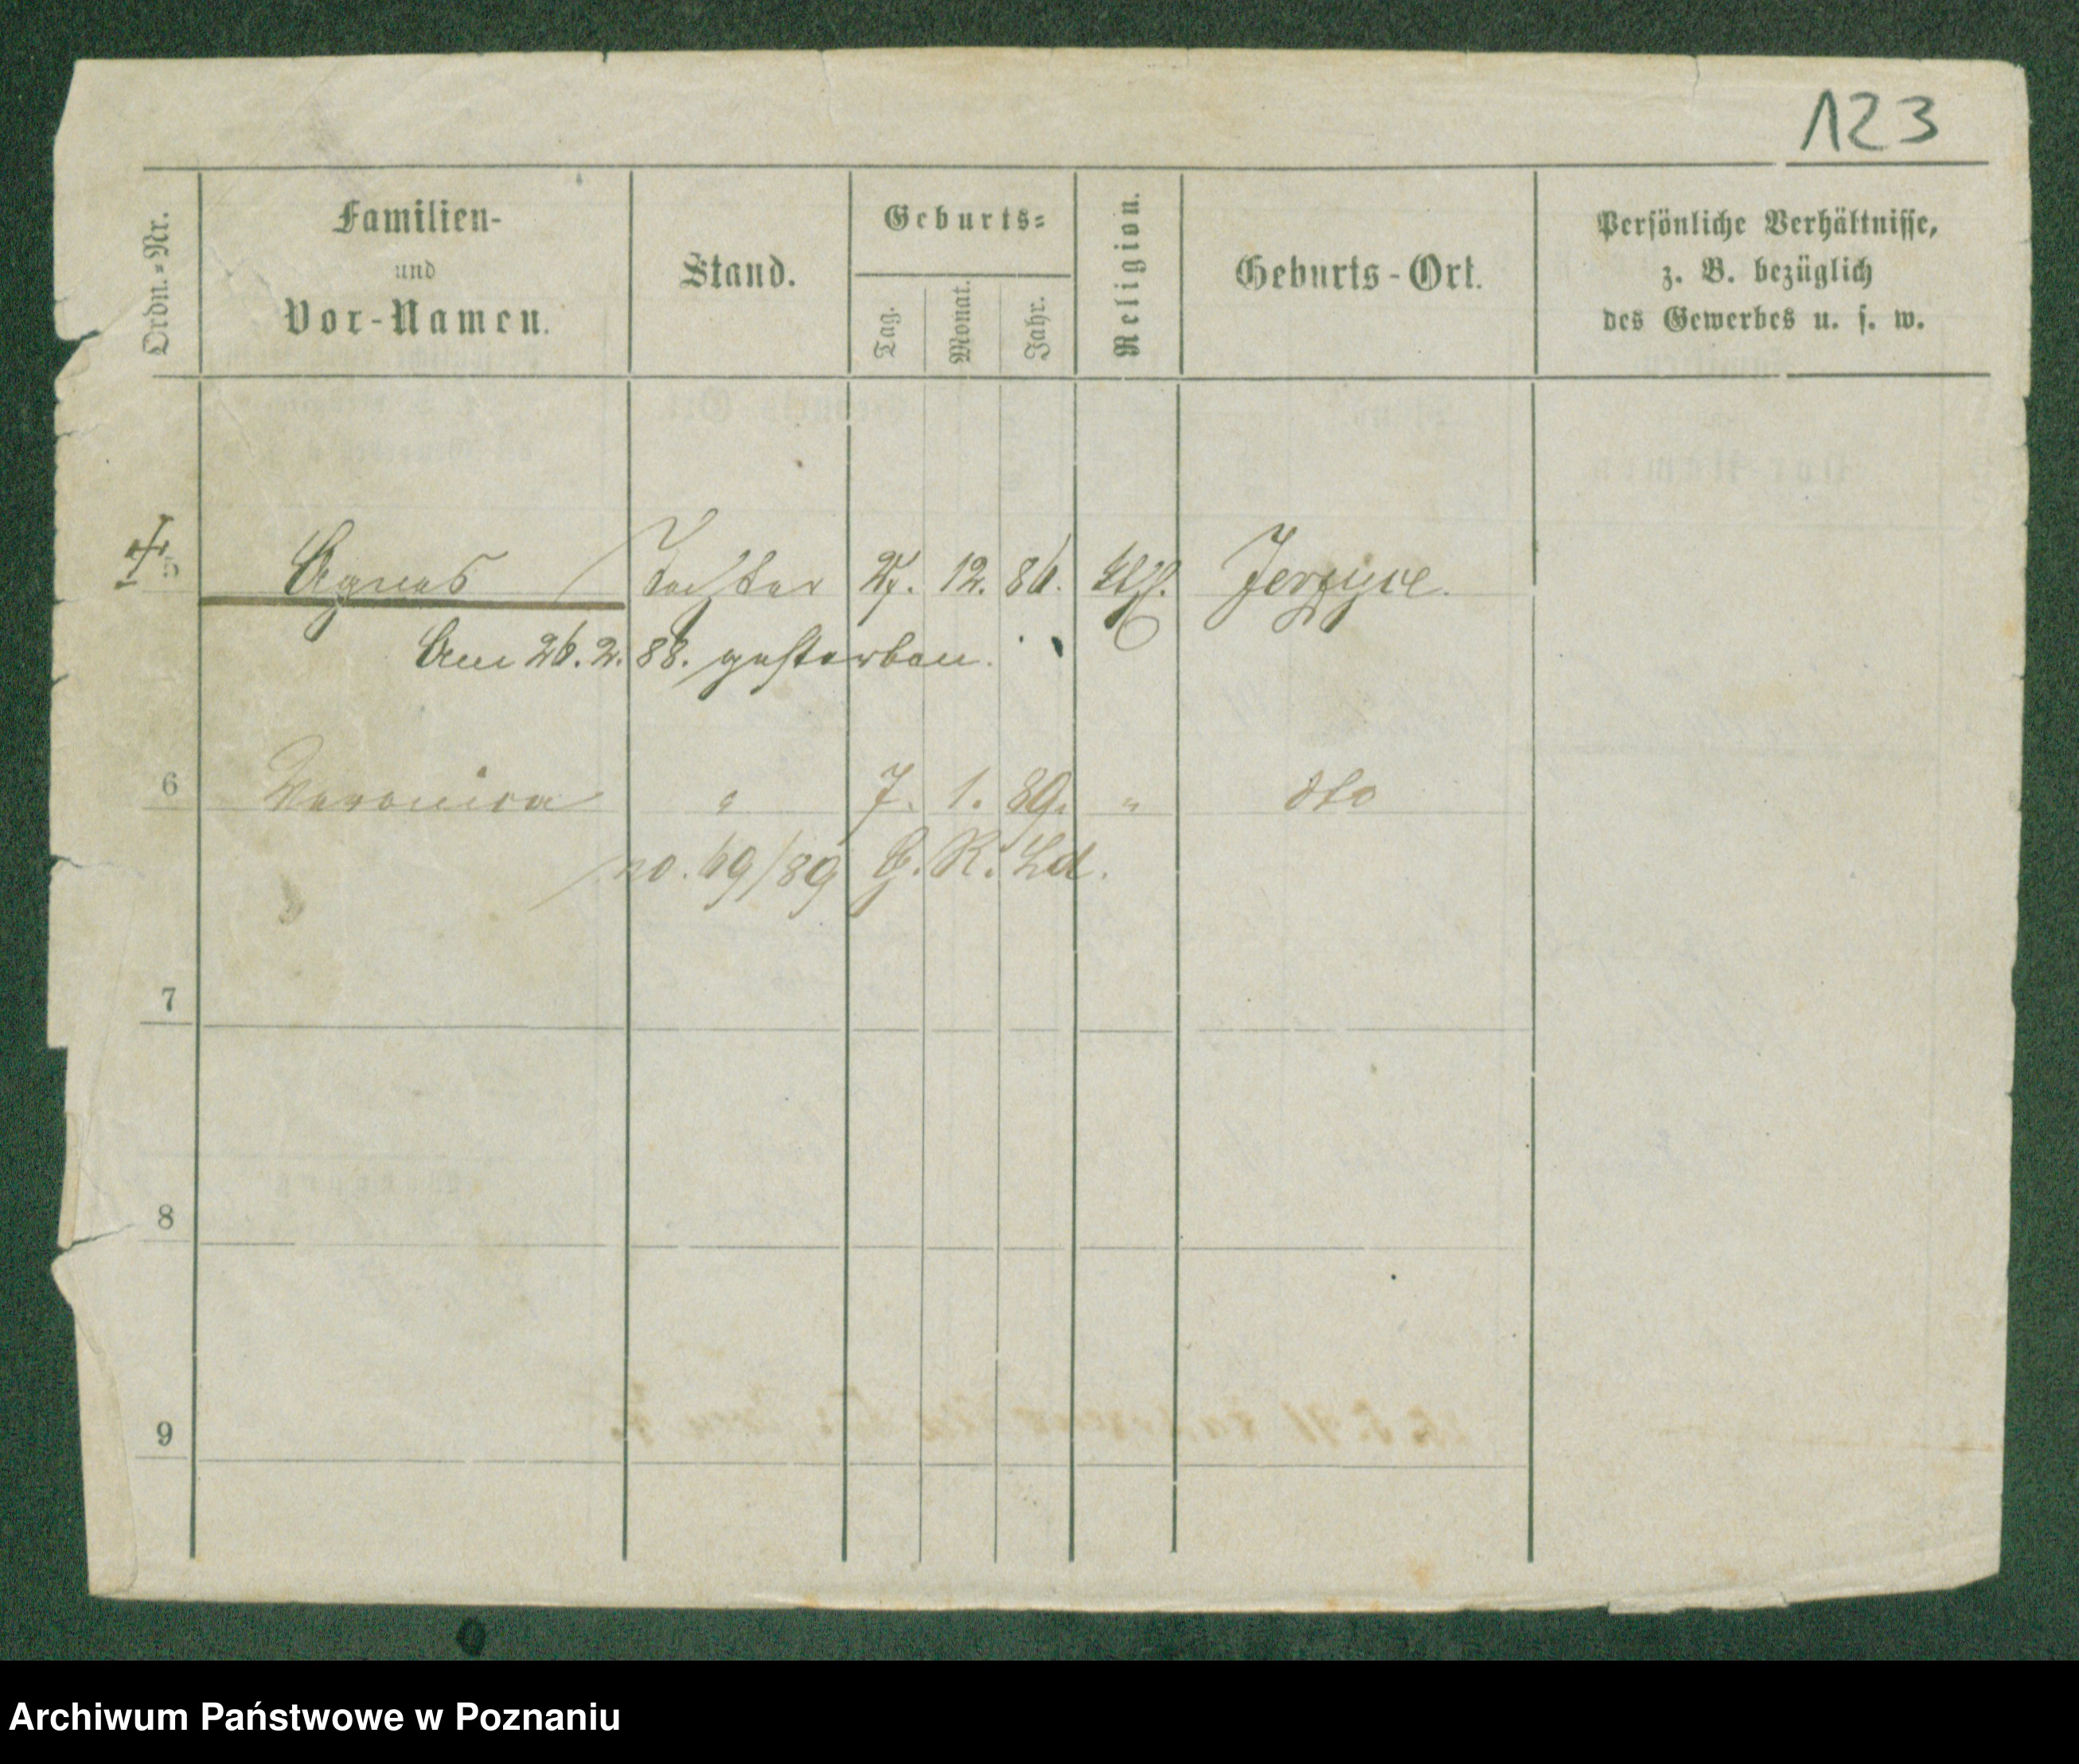 123
Ordn.-Nr.
Familien-
und
Vor-Namen.
Stand.
Geburts-
Tag.
Monat.
Jahr.
Religion.
Geburts-Ort.
Persönliche Verhältnisse,
z. B. bezüglich
des Gewerbes u. s. w.
5 Agnes Tochter 27. 12. 86. kth. Jerzyce.
Am 26. 2. 88. gestorben.
6 Veronica " 7. 1. 89. " dto
no. 69/89 G. R.
7
8
9
Archiwum Państwowe w Poznaniu